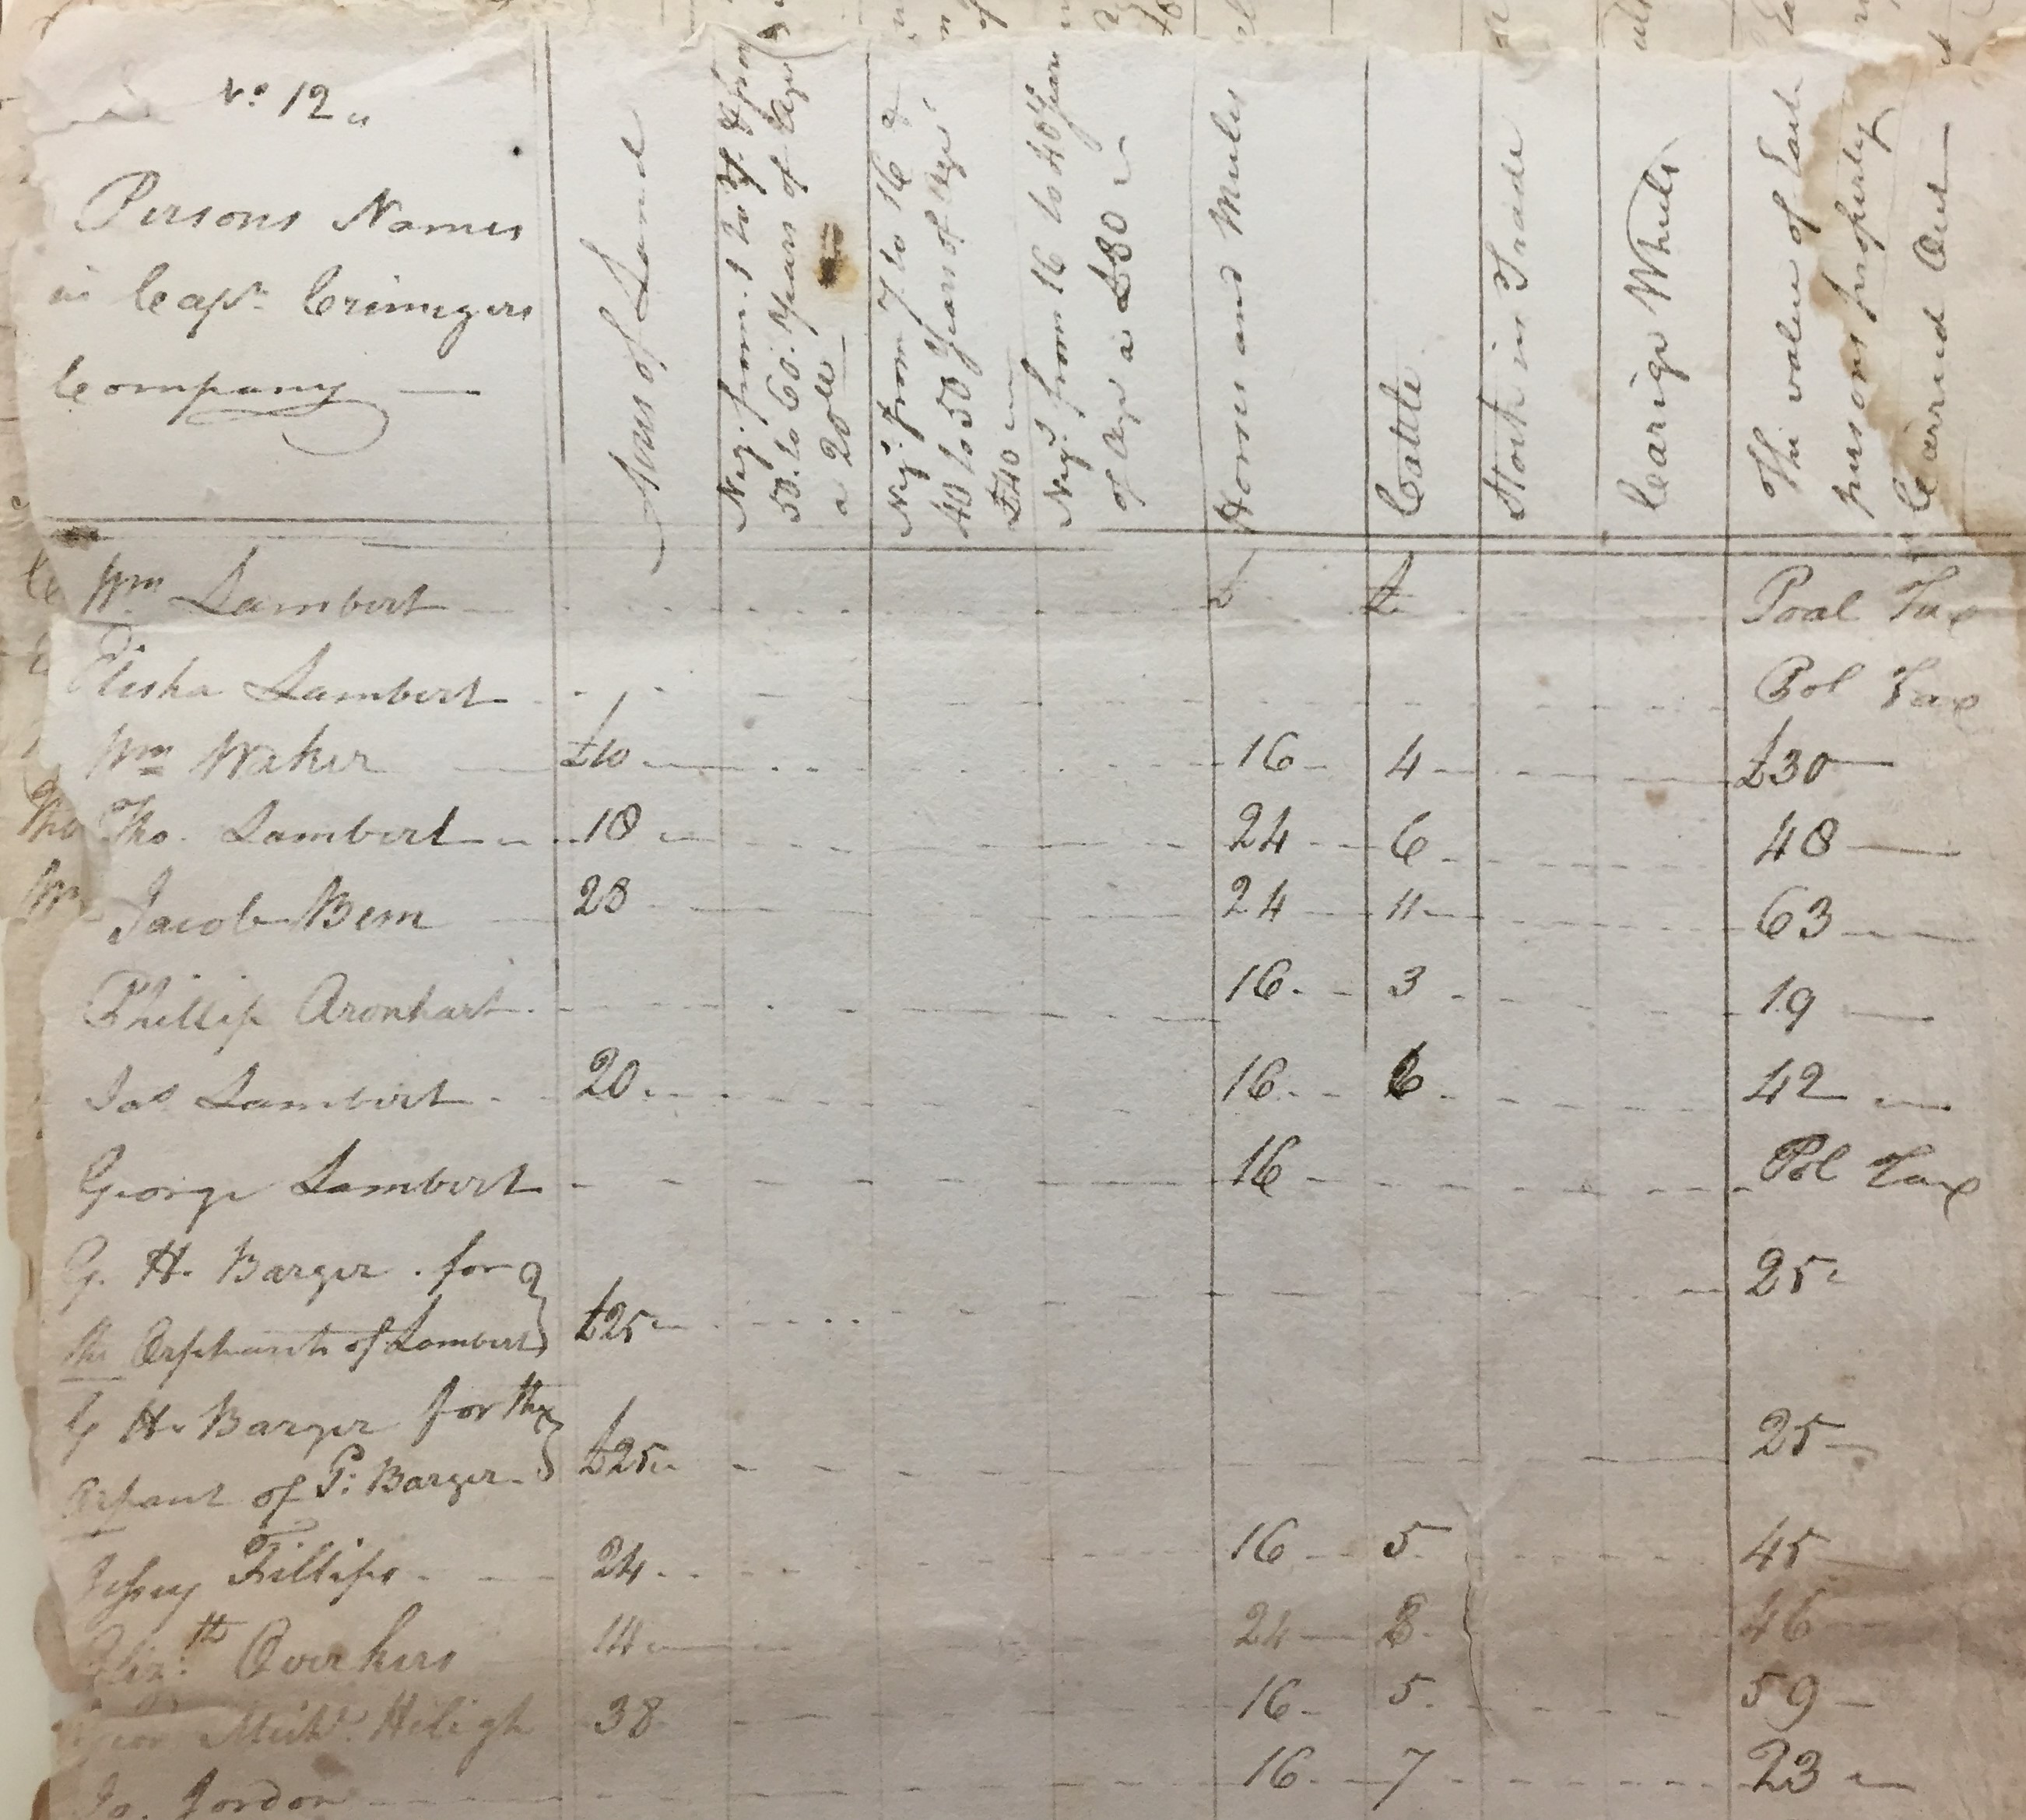 No 12
Persons Names
in Capt. Crinigers
Company
Acres of Land
Neg. from 1 to 7 & from
50 to 60 Years of Age
a 20
Neg. from 7 to 16 &
40 to 50 Years of Age
£40
Neg.s from 16 to 40 Years
of Age a £80
Horses and Mules
Cattle
Stock in Trade
Carige Wheels
The value of Each
persons property
Carried Out
Wm Lambert £ £ Poal Tax
Elisha Lambert Pol Tax
Wm Waker £10 16 4 £30
Tho. Lambert 18 24 6 48
Jacob Bem 28 24 11 63
Phillip Aronhart 16 3 19
Jas Lambert 20 16 6 42
George Lambert 16 Pol Tax
G. H. Barger for 25
the Orphants of Lambert £25
G H. Barger for the 25
Orpant of P. Barger £25
Jessey Fillips 24 16 5 45
Eliz.th Overkers 14 24 8 46
Geor Mich.l Heligh 38 16 5 59
Jo. Jordon 16 7 23